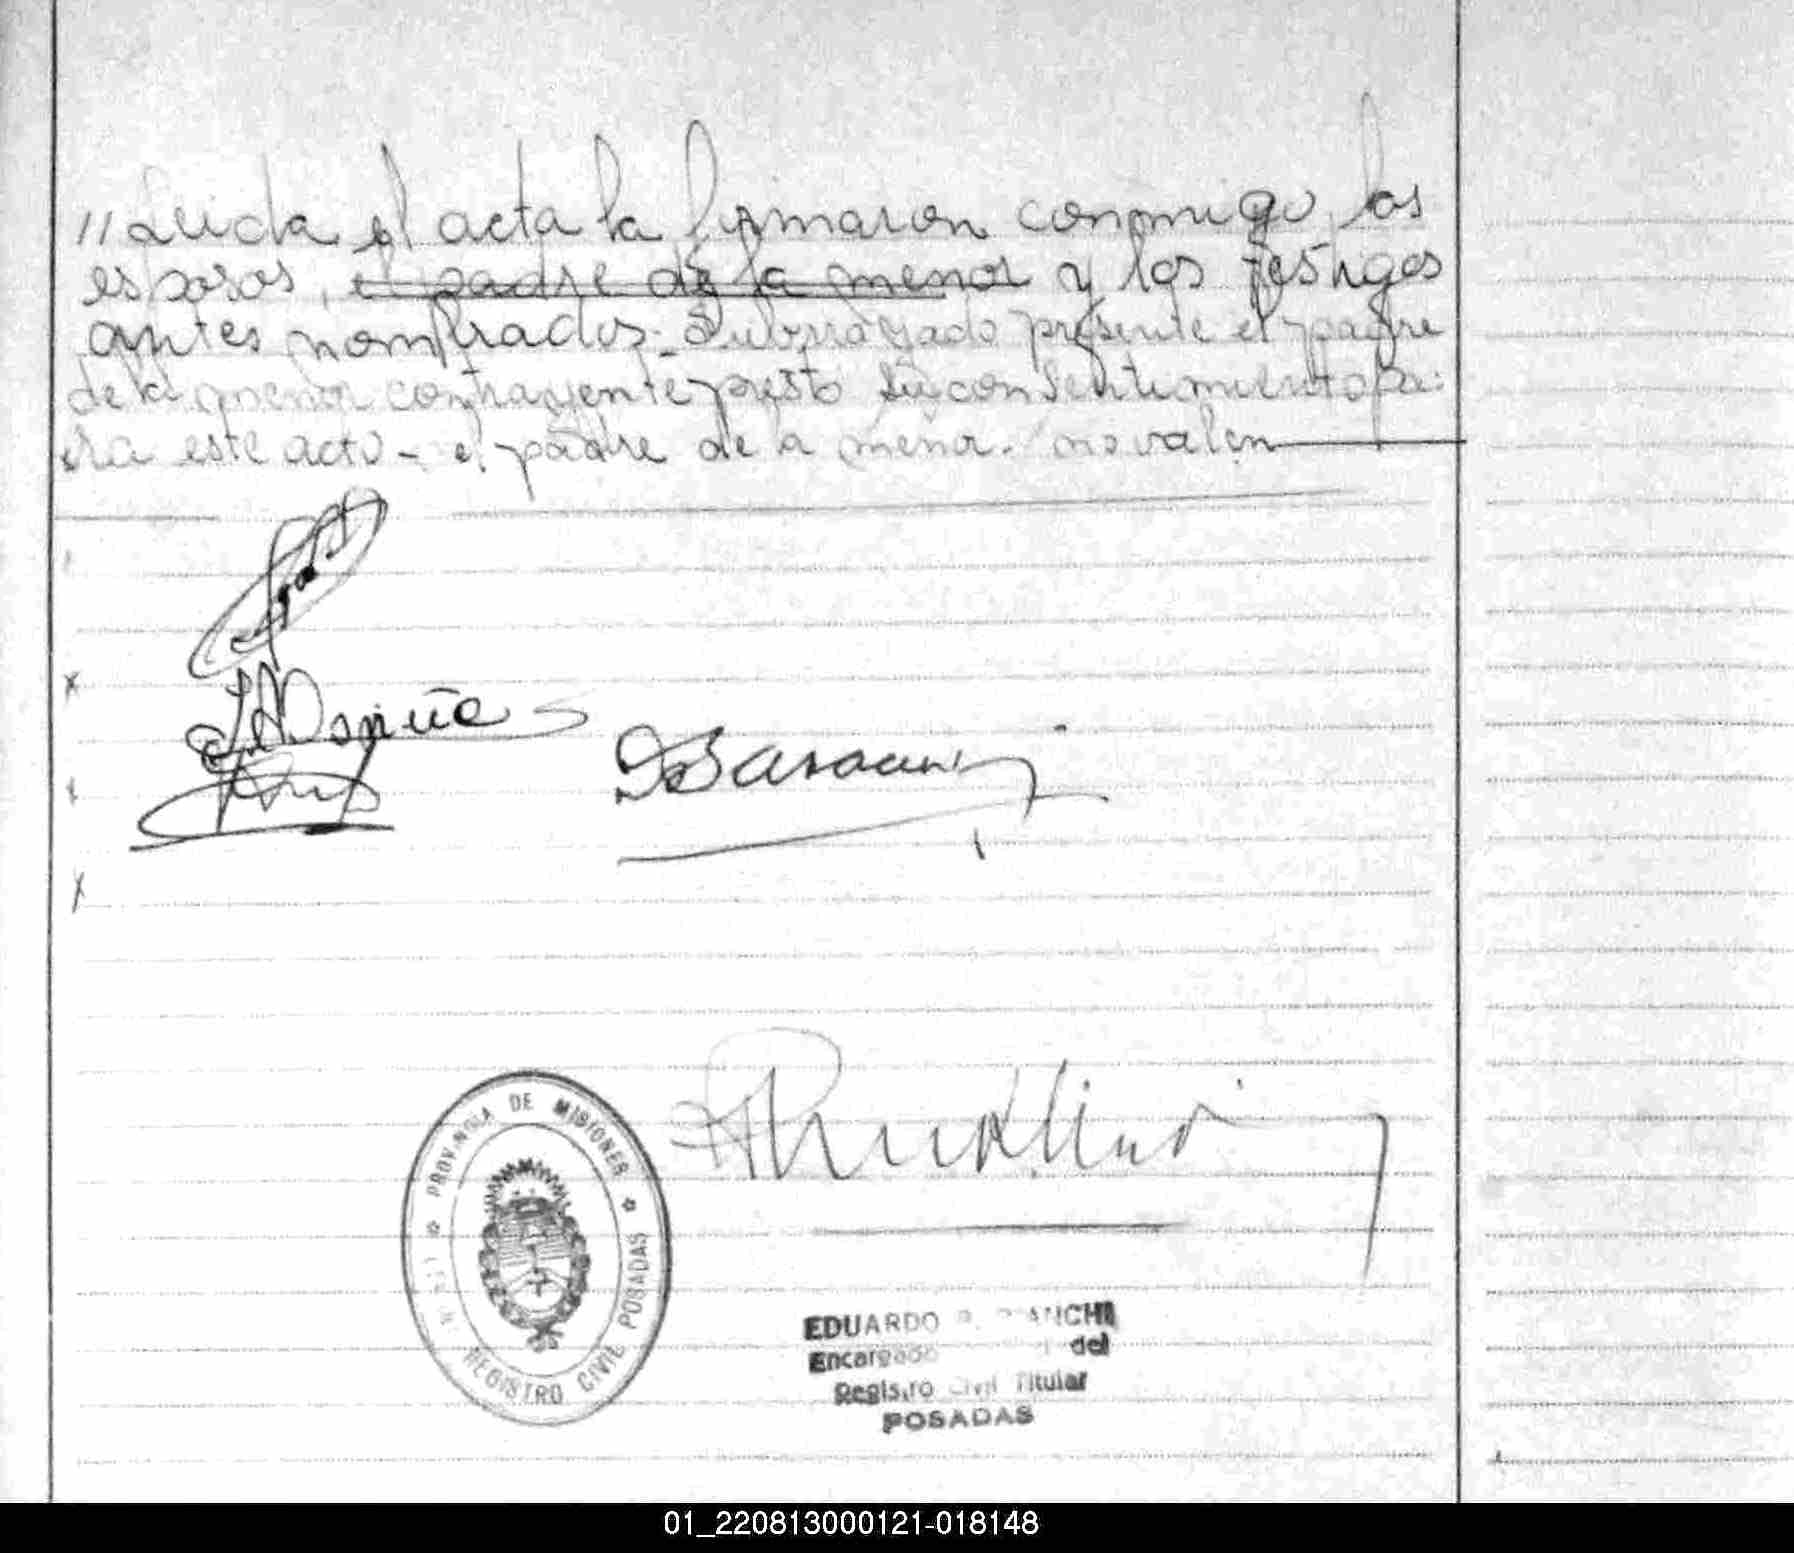 // Leida el acta la firmaron conmigo los
esposos, el padre de la menor y los testigos
antes nombrados.- Subrrayado presente el padre
de la menor contrayente presto su consentimiento pa-
ra este acto - el padre de la menor. no valen
PROVINCIA DE MISIONES
REGISTRO CIVIL POSADAS
EDUARDO
Encargado del
Registro Civil Titular
POSADAS
01_220813000121-018148